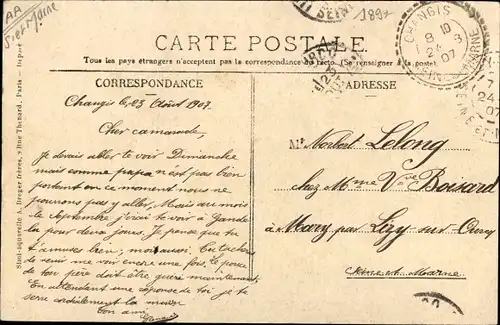 AA
S-et-Marne
1897
CARTE POSTALE
Tous les pays étrangers n'acceptent pas la correspondance au recto. (Se renseigner à la poste).
CORRESPONDANCE
ADRESSE
Changis le 23 Août 1907.
Cher camarade,
Je devais aller te voir Dimanche
mais comme papa n'est pas bien
portant en ce moment nous ne
pourrons pas y aller. Mais au mois
de Septembre j'irai te voir à
pour deux jours. Je pense que tu
t'amuses bien; moi aussi. Tu tâcheras
de venir me voir encore une fois. Le pouce
de ton père doit être guéri maintenant.
En attendant une réponse de toi je te
serre cordialement la main.
Ton ami
Mr Norbert Lelong
chez Mme Vve Boisard
à Mary par Lizy sur Ourcq
Seine et Marne
CHANGIS
8 10
24 8
07
SEINE-ET-MARNE
7
24
07
SEINE ET M
Simi-aquarelle A. Breger frères, 9 Rue Thenard, Paris